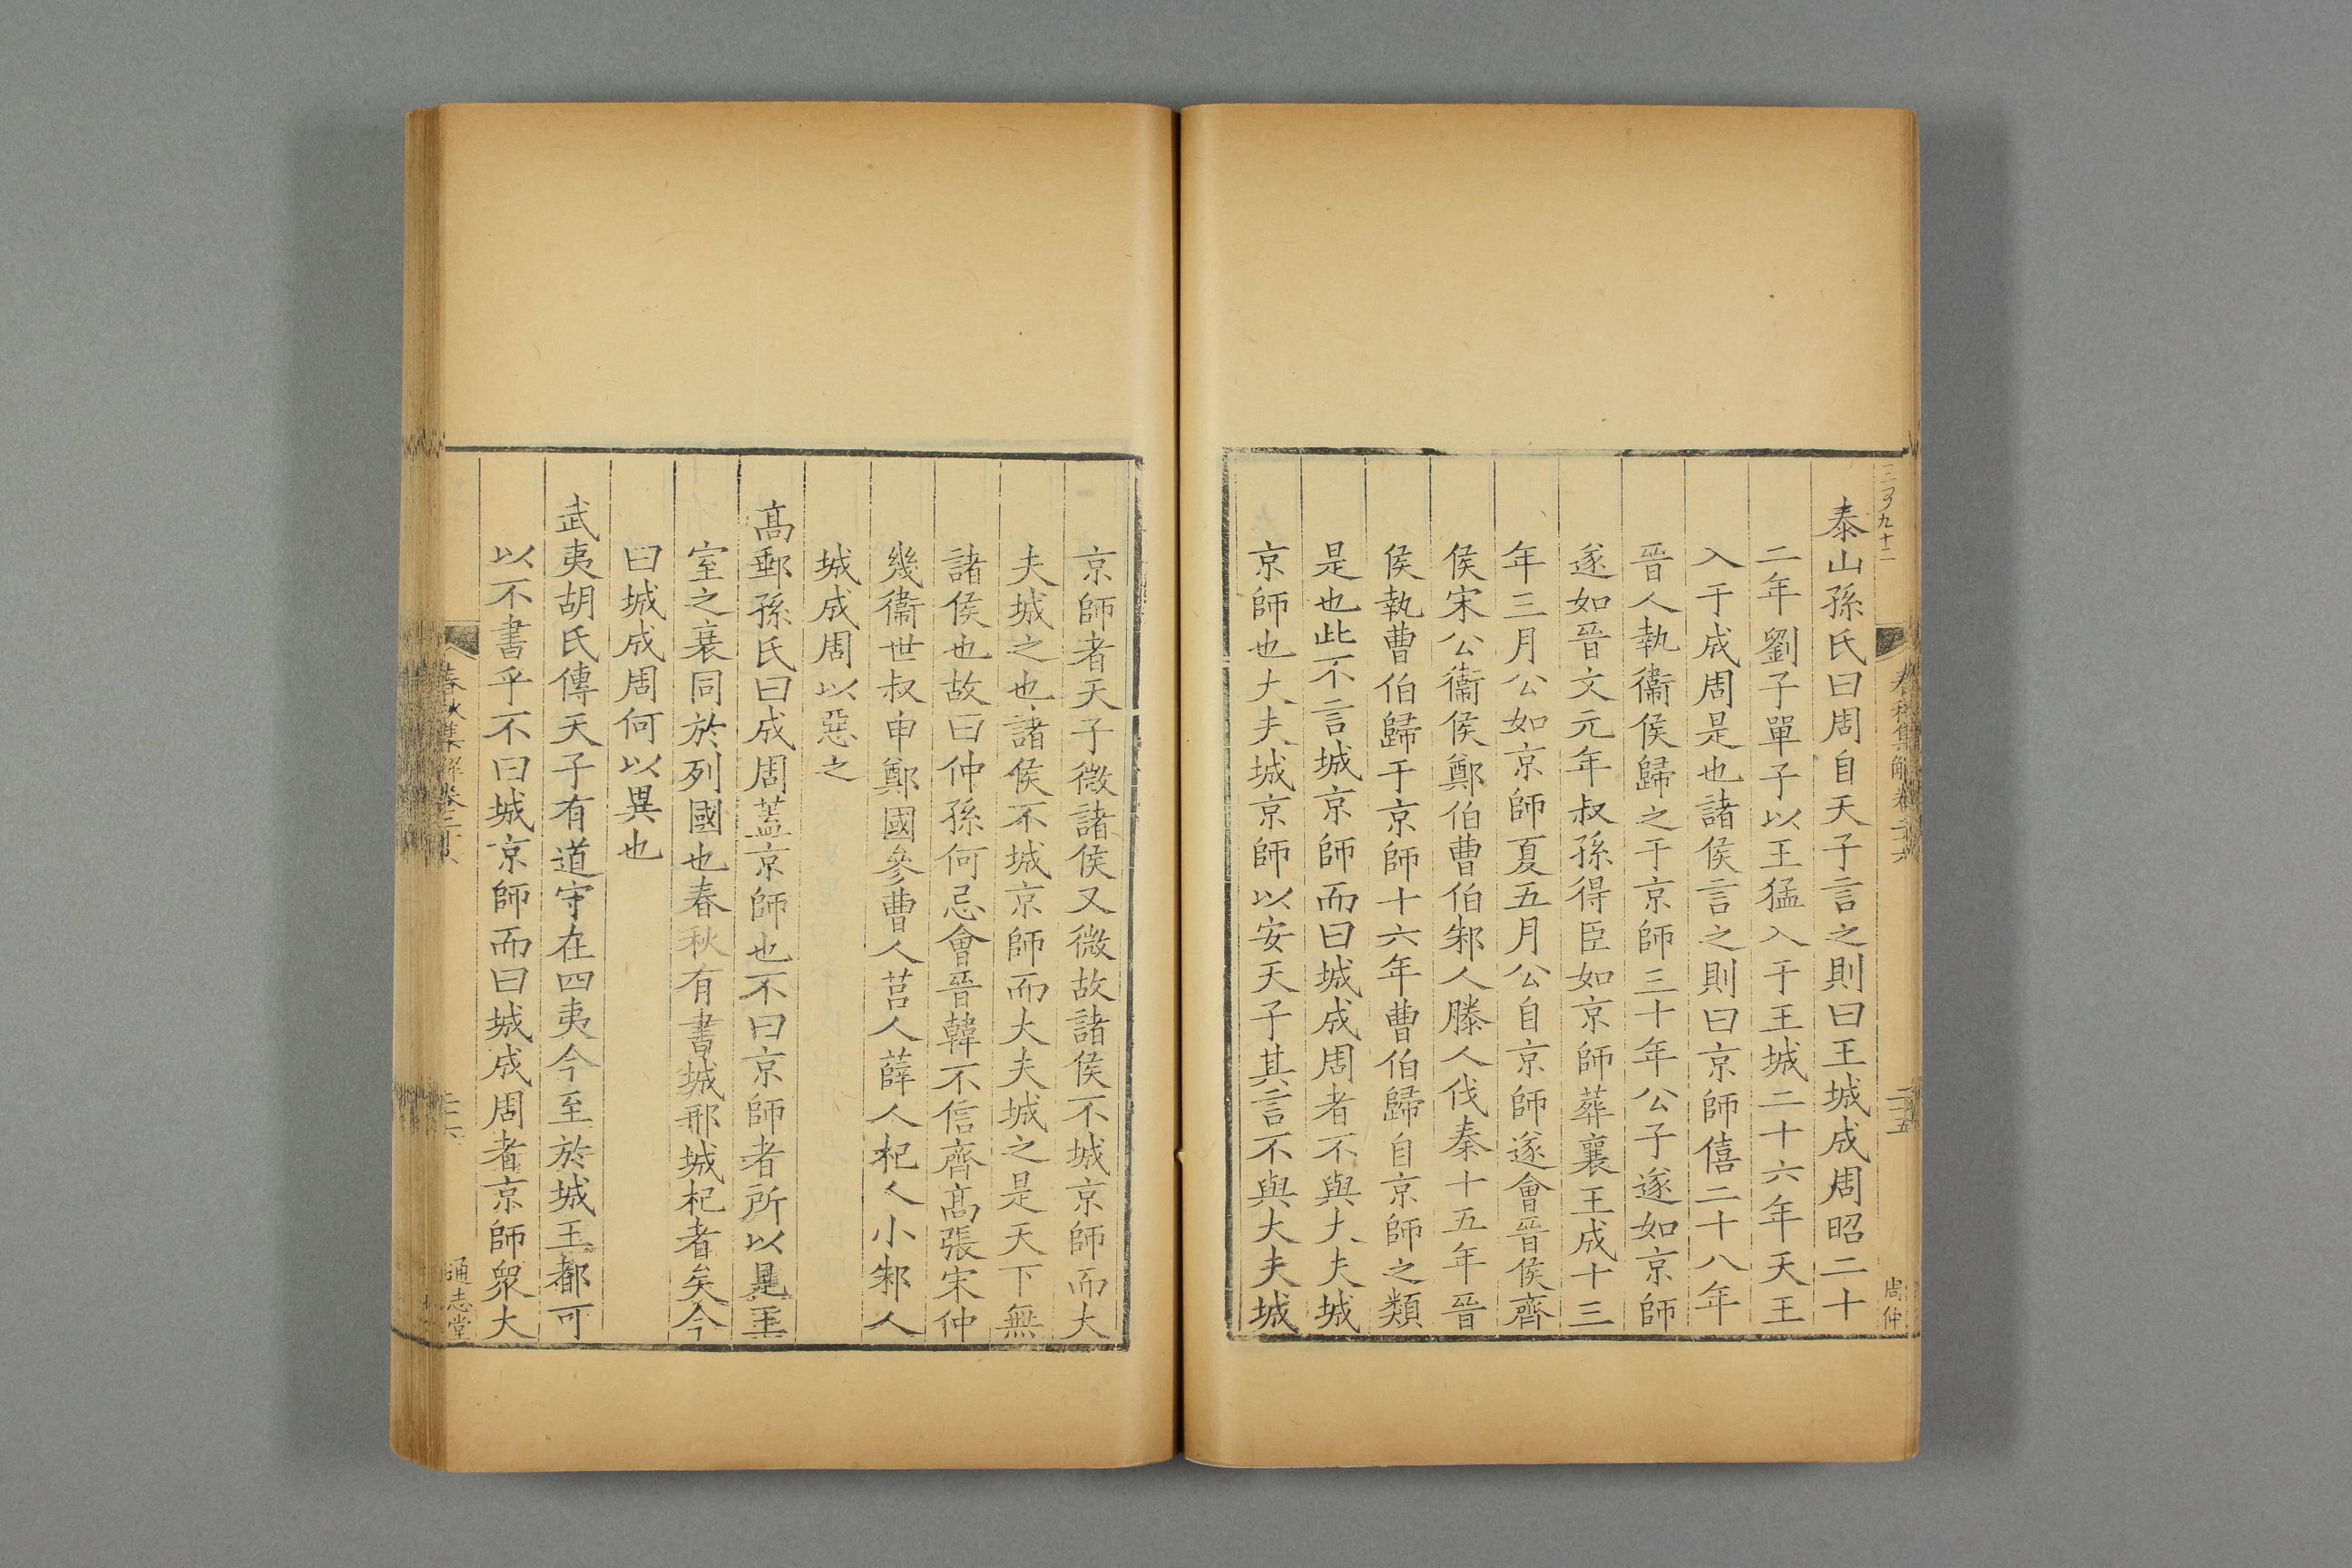 泰山孫氏曰周自天子言之則曰王城成周昭二十
二年劉子單子以王猛入于王城二十六年天王
入于成周是也諸侯言之則曰京師僖二十八年
晉人執衞侯歸之于京師三十年公子遂如京師
遂如晉文元年叔孫得臣如京師葬襄王成十三
年三月公如京師夏五月公自京師遂會晉侯齊
侯宋公衞侯鄭伯曹伯邾人滕人伐秦十五年晉
侯執曹伯歸于京師十六年曹伯歸自京師之類
是也此不言城京師而曰城成周者不與大夫城
京師也大夫城京師以安天子其言不與大夫城
京師者天子微諸侯又微故諸侯不城京師而大
夫城之也諸侯不城京師而大夫城之是天下無
諸侯也故曰仲孫何忌會晉韓不信齊髙張宋仲
幾衞世叔申鄭國參曹人莒人薛人杞人小邾人
城成周以惡之
髙郵孫氏曰成周蓋京師也不曰京師者所以是王
室之衰同於列國也春秋有書城邢城杞者矣今
曰城成周何以異也
武夷胡氏傳天子有道守在四夷今至於城王都可
以不書乎不曰城京師而曰城成周者京師衆大
春秋集解卷二十六
二十五
周仲
通志堂